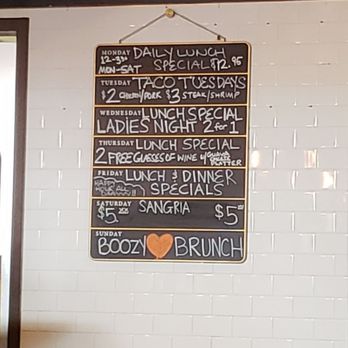 MONDAY DAILY LUNCH
12-3PM SPECIAL $12.95
MON-SAT
TUESDAY TACO TUESDAYS
$2 CHICKEN/PORK $3 STEAK/SHRIMP
WEDNESDAY LUNCH SPECIAL
LADIES NIGHT 2 for 1
THURSDAY LUNCH SPECIAL
2 FREE GLASSES OF WINE W/
PLATTER
FRIDAY LUNCH & DINNER
HAPPY SPECIALS
SATURDAY SANGRIA
$5 $5
SUNDAY
BOOZY BRUNCH